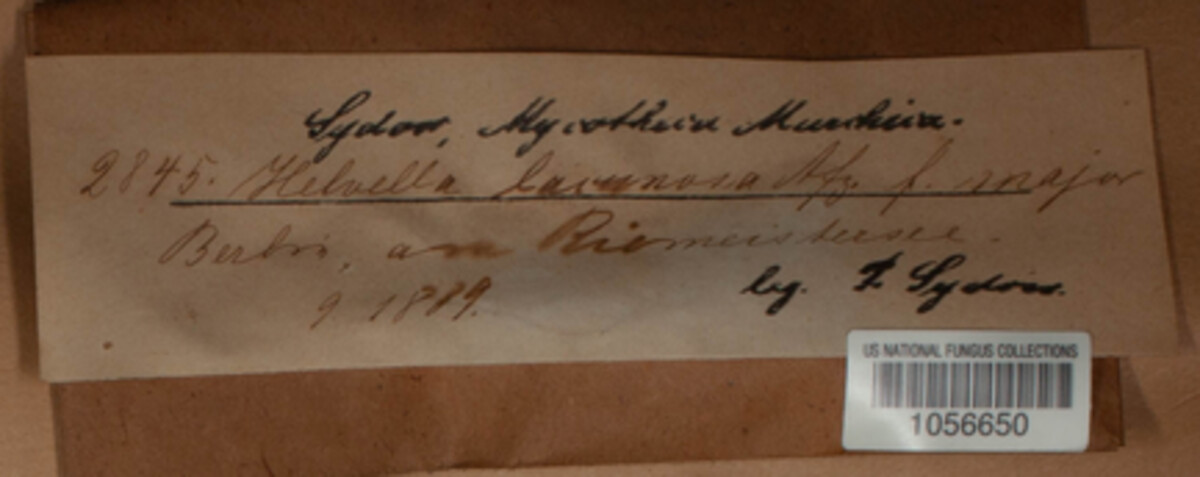 Sydow, Mycotheca Marchica.
2845. Helvella lacunosa Afz. f. major
Berlin, am Riemeistersee.
9 1889.
leg. P. Sydow.
US NATIONAL FUNGUS COLLECTIONS
1056650